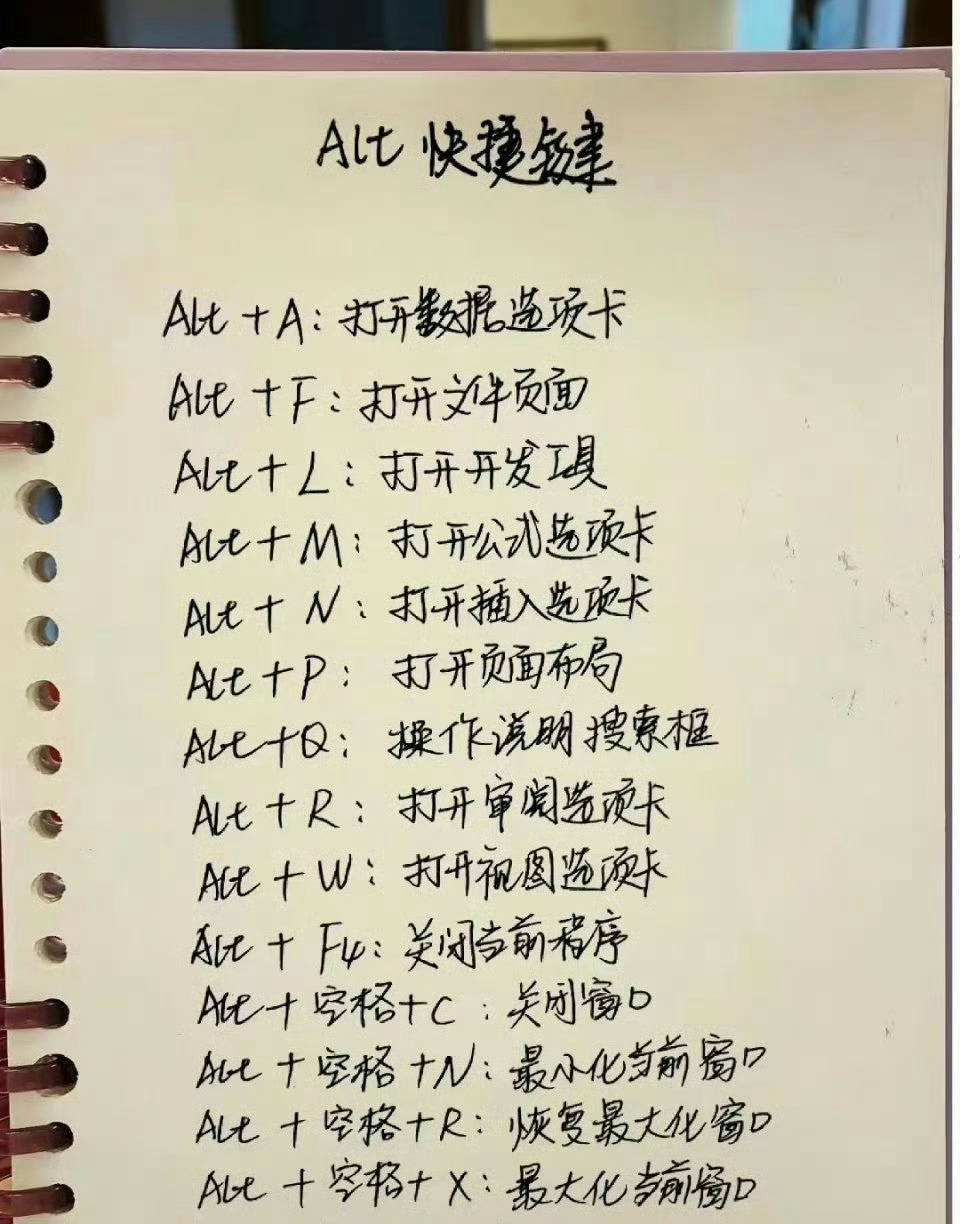 Alt 快捷键
Alt + A：打开数据选项卡
Alt + F：打开文件页面
Alt + L：打开开发工具
Alt + M：打开公式选项卡
Alt + N：打开插入选项卡
Alt + P：打开页面布局
Alt + Q：操作说明搜索框
Alt + R：打开审阅选项卡
Alt + W：打开视图选项卡
Alt + F4：关闭当前程序
Alt + 空格 + C：关闭窗口
Alt + 空格 + N：最小化当前窗口
Alt + 空格 + R：恢复最大化窗口
Alt + 空格 + X：最大化当前窗口